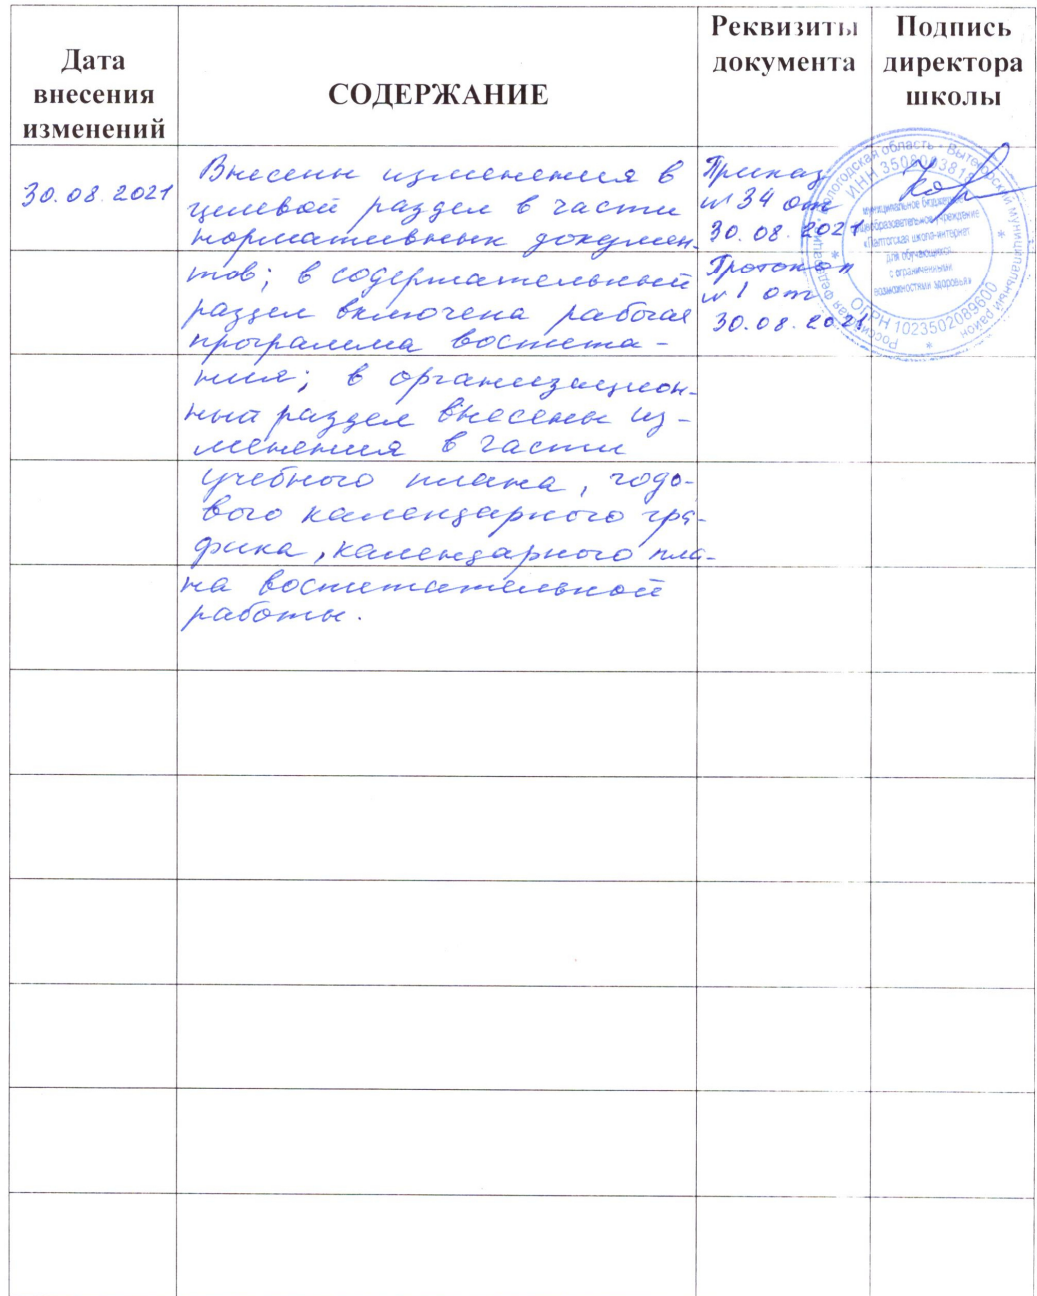 Дата
внесения
изменений
СОДЕРЖАНИЕ
Реквизиты
документа
Подпись
директора
школы
30.08.2021
Внесены изменения в
целевой раздел в части
нормативных докумен-
тов; в содержательный
раздел включена рабочая
программа воспита-
ния; в организацион-
ный раздел внесены из-
менения в части
учебного плана, годо-
вого календарного гра-
фика, календарного пла-
на воспитательной
работы.
Приказ
№34 от
30.08.2021
Протокол
№1 от
30.08.2021
Российская Федерация
Вологодская область - Вытегорский муниципальный район
ИНН 350800381
муниципальное бюджетное
общеобразовательное учреждение
школа-интернат
для обучающихся
с ограниченными
возможностями здоровья»
ОГРН 1023502089600